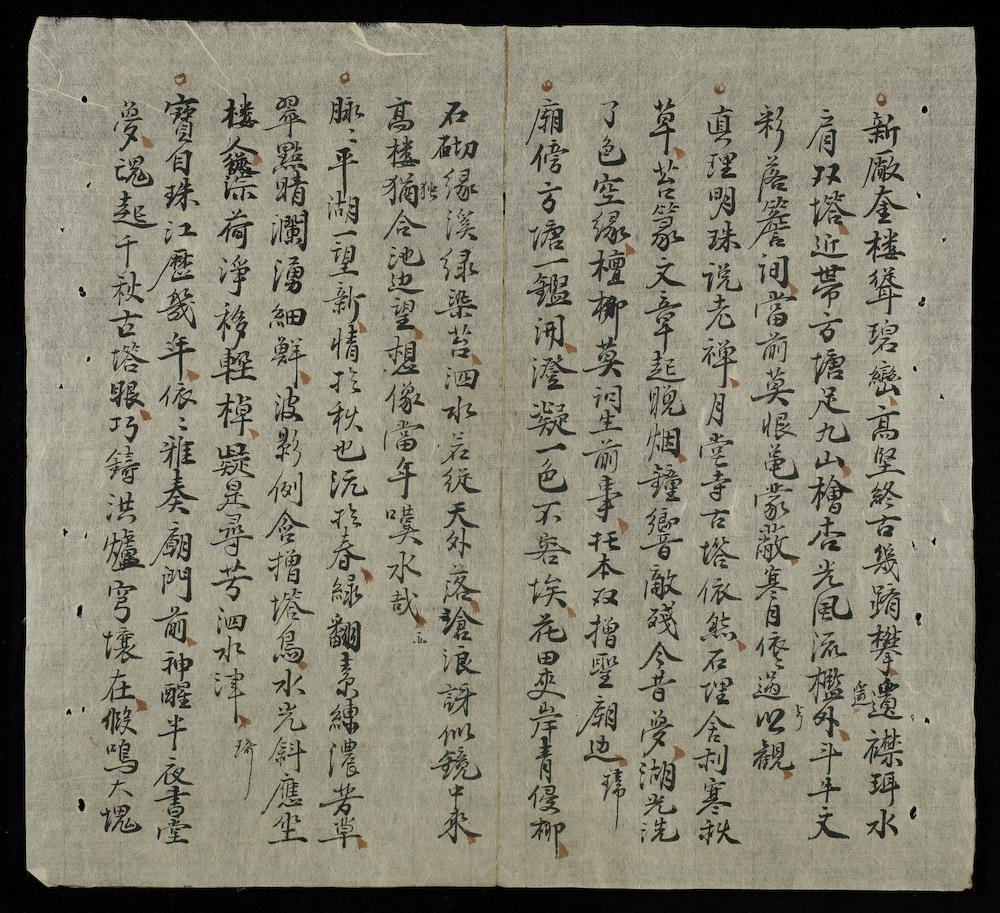 新廠奎楼聳碧巒高堅終古幾躋攀遶襟珥水
肩双塔近帯方塘足九山檜杏光風流檻外斗牛文
彩落簷间當前莫恨黾蒙蔽寒月依過以觀
真理明珠説老禅月堂寺古塔依然石埋舍利寒秋
草苔篆文章起晚烟鐘響敲殘今昔夢湖光洗
了色空缘檀梛莫问生前事托本双揩聖廟边
廟傍方塘一鑑開澄凝一色不容埃花田夾岸青侵柳
石砌縁溪绿染苔泗水若従天外落滄浪訝似鏡中来
高楼猶合池边望想像當年嘆水哉
脉〻平湖一望新情於秋也沅於春緑翻素練濃芳草
翠點晴瀾湧細鮮波影例含揩塔鳥水光斜應坐
楼人遊深荷淨移輕棹疑是尋芳泗水津
寶自珠江歷幾年依〻雅奏廟門前神醒半夜書堂
夢魂起千秋古塔眼巧鋳洪爐穹壤在假鳴大塊